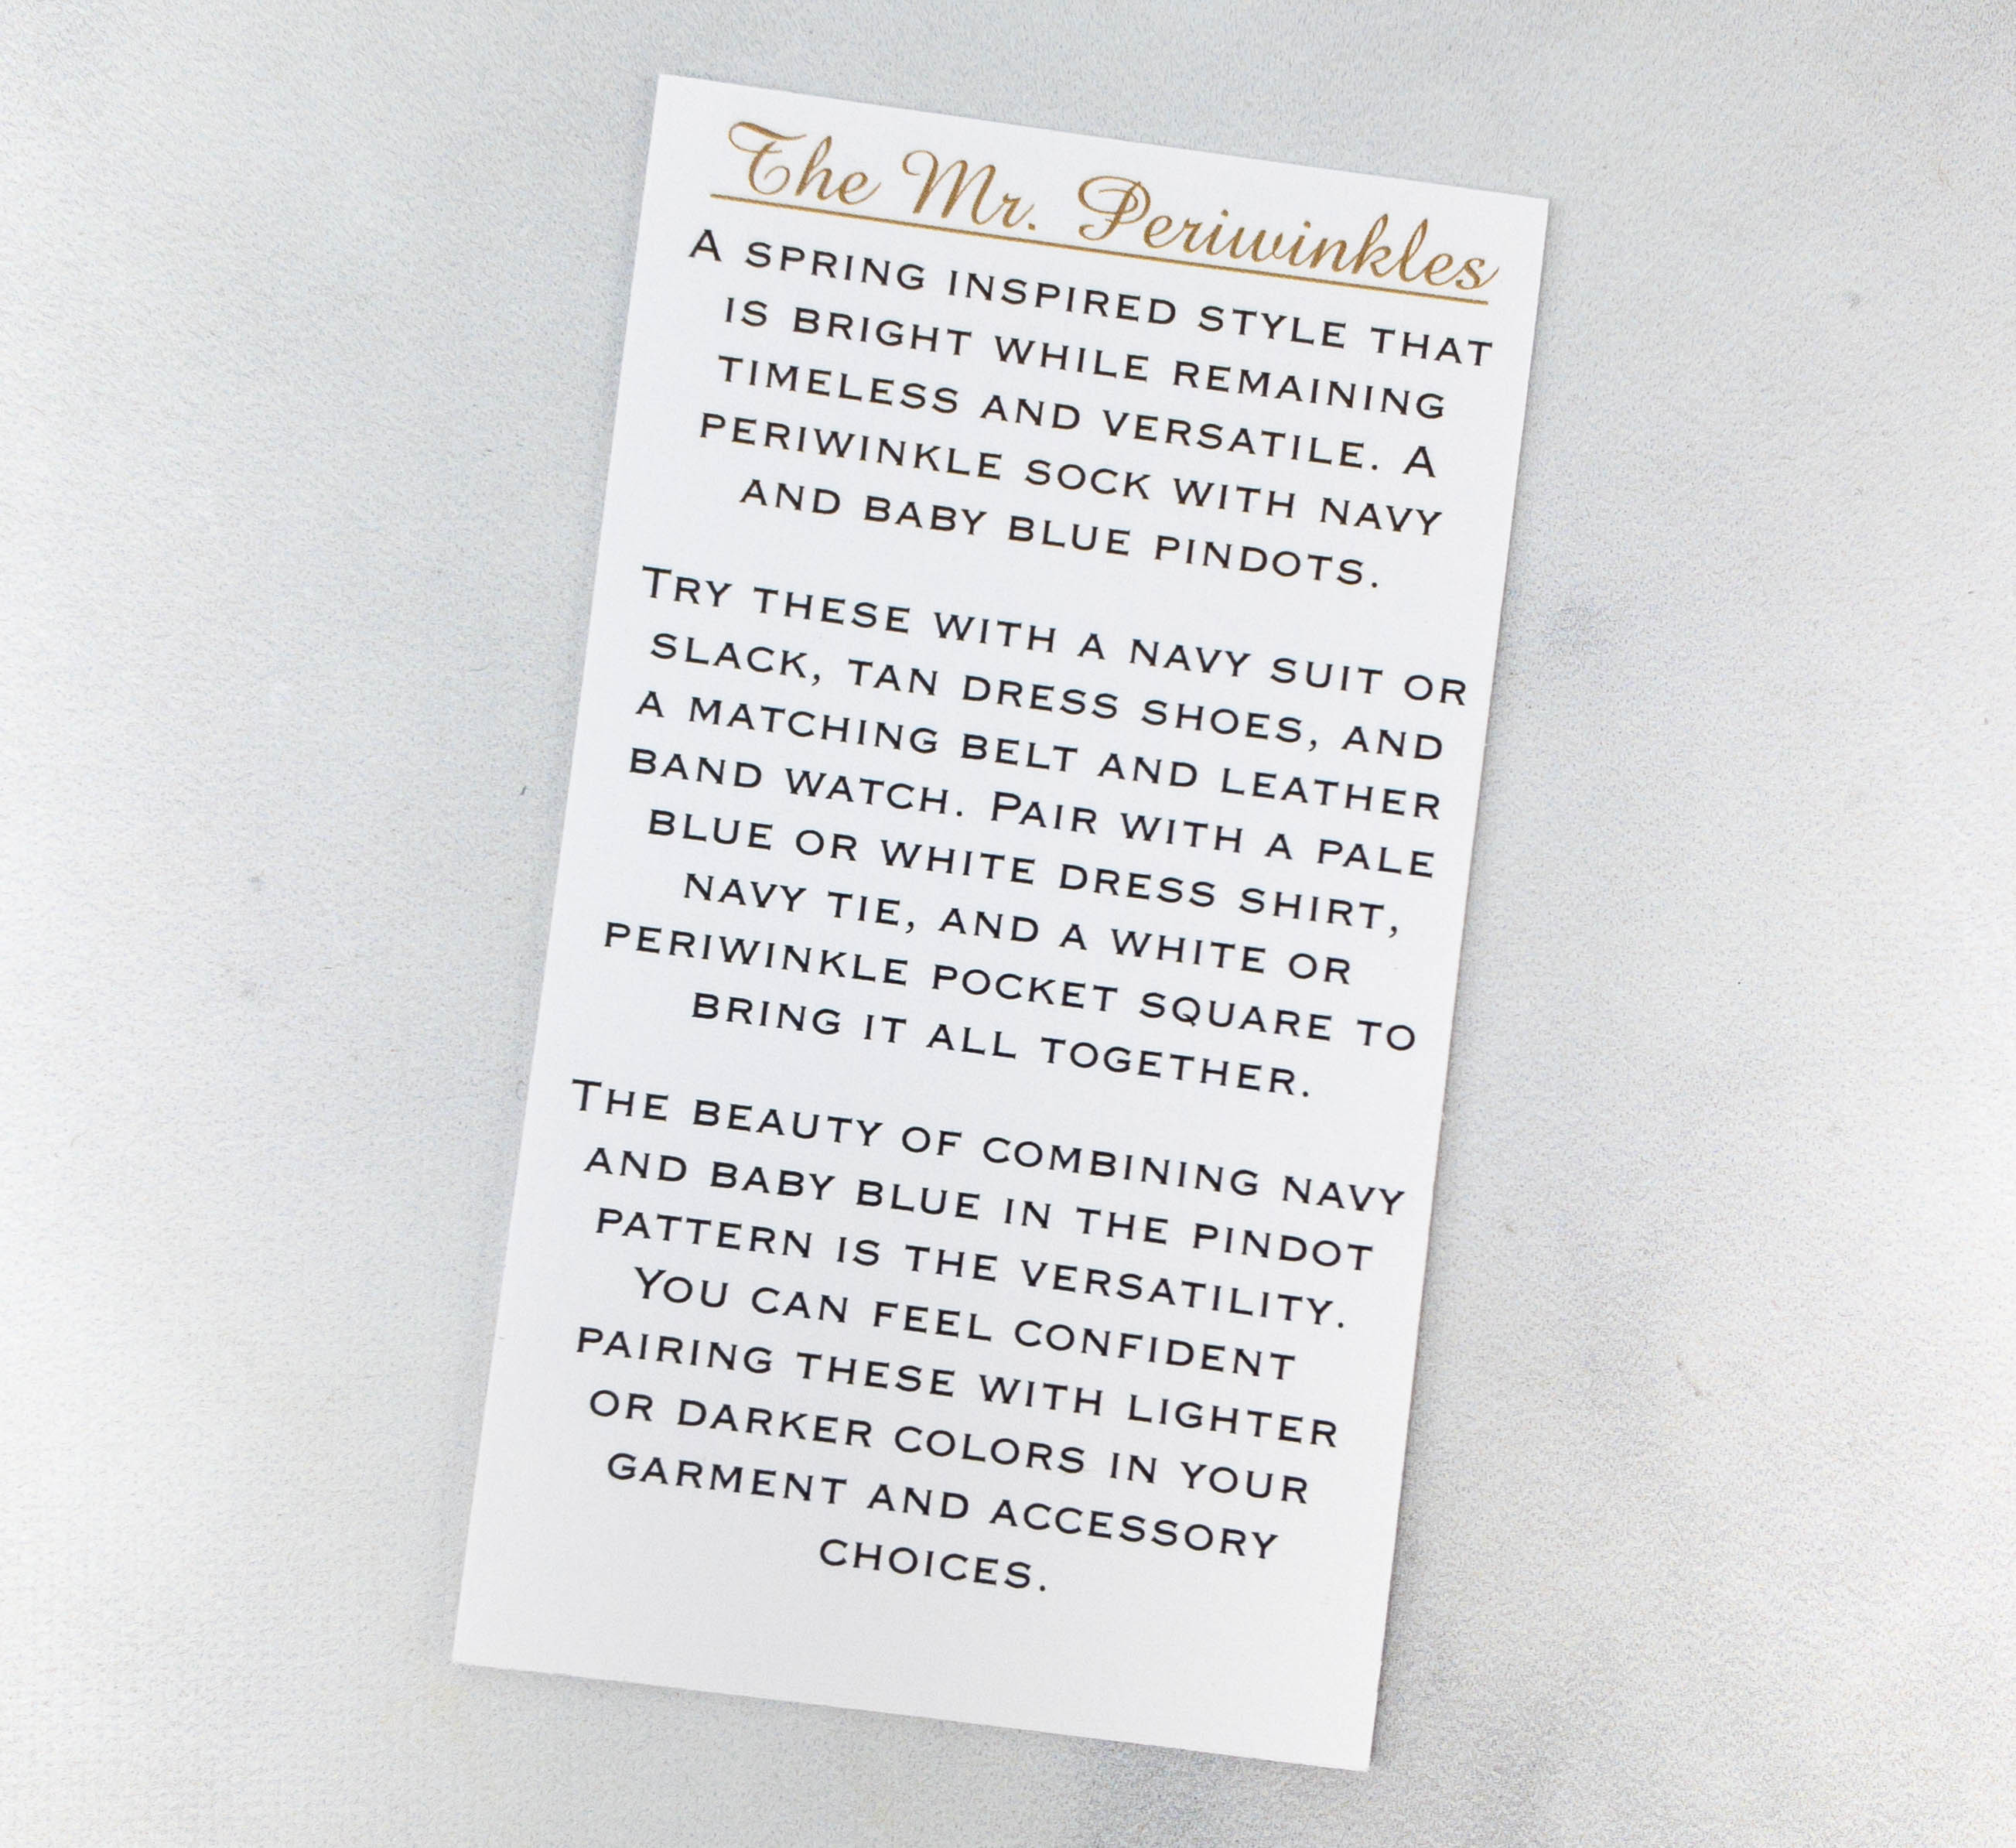 The Mr. Periwinkles
A SPRING INSPIRED STYLE THAT
IS BRIGHT WHILE REMAINING
TIMELESS AND VERSATILE. A
PERIWINKLE SOCK WITH NAVY
AND BABY BLUE PINDOTS.
TRY THESE WITH A NAVY SUIT OR
SLACK, TAN DRESS SHOES, AND
A MATCHING BELT AND LEATHER
BAND WATCH. PAIR WITH A PALE
BLUE OR WHITE DRESS SHIRT,
NAVY TIE, AND A WHITE OR
PERIWINKLE POCKET SQUARE TO
BRING IT ALL TOGETHER.
THE BEAUTY OF COMBINING NAVY
AND BABY BLUE IN THE PINDOT
PATTERN IS THE VERSATILITY.
YOU CAN FEEL CONFIDENT
PAIRING THESE WITH LIGHTER
OR DARKER COLORS IN YOUR
GARMENT AND ACCESSORY
CHOICES.